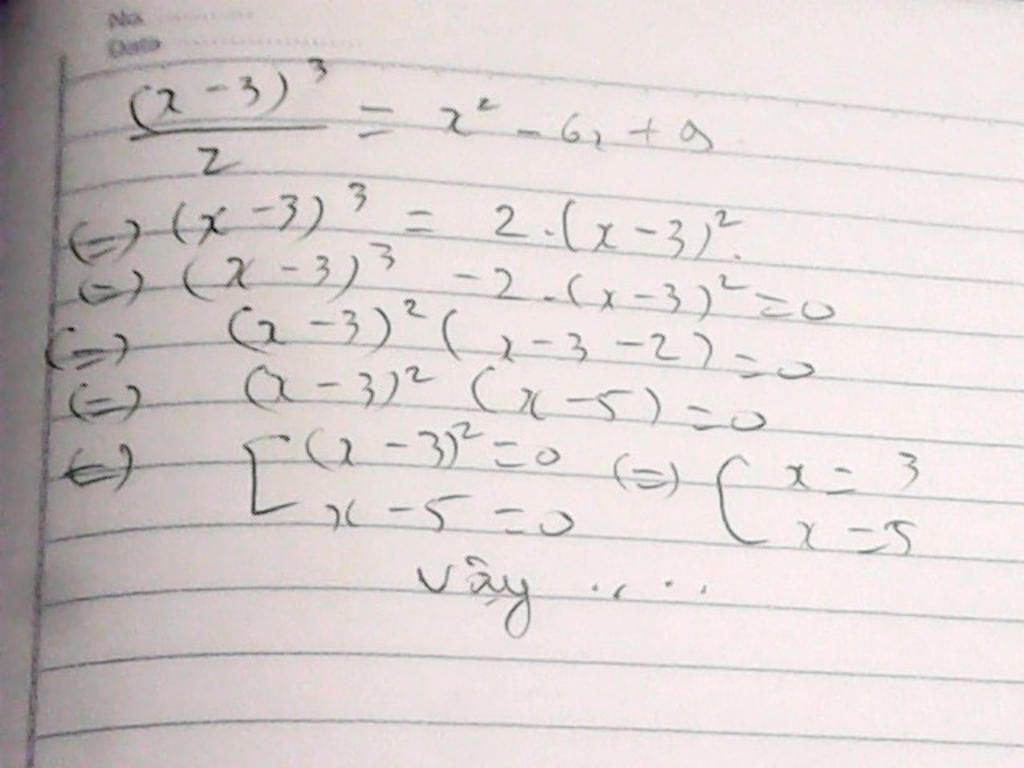 No. ............
Date ....................
(x - 3)³ / 2 = x² - 6x + 9
(=) (x - 3)³ = 2.(x - 3)².
(=) (x - 3)³ - 2.(x - 3)² = 0
(=) (x - 3)² (x - 3 - 2) = 0
(=) (x - 3)² (x - 5) = 0
(=) [ (x - 3)² = 0 (=) [ x = 3
x - 5 = 0 x = 5
Vậy .....